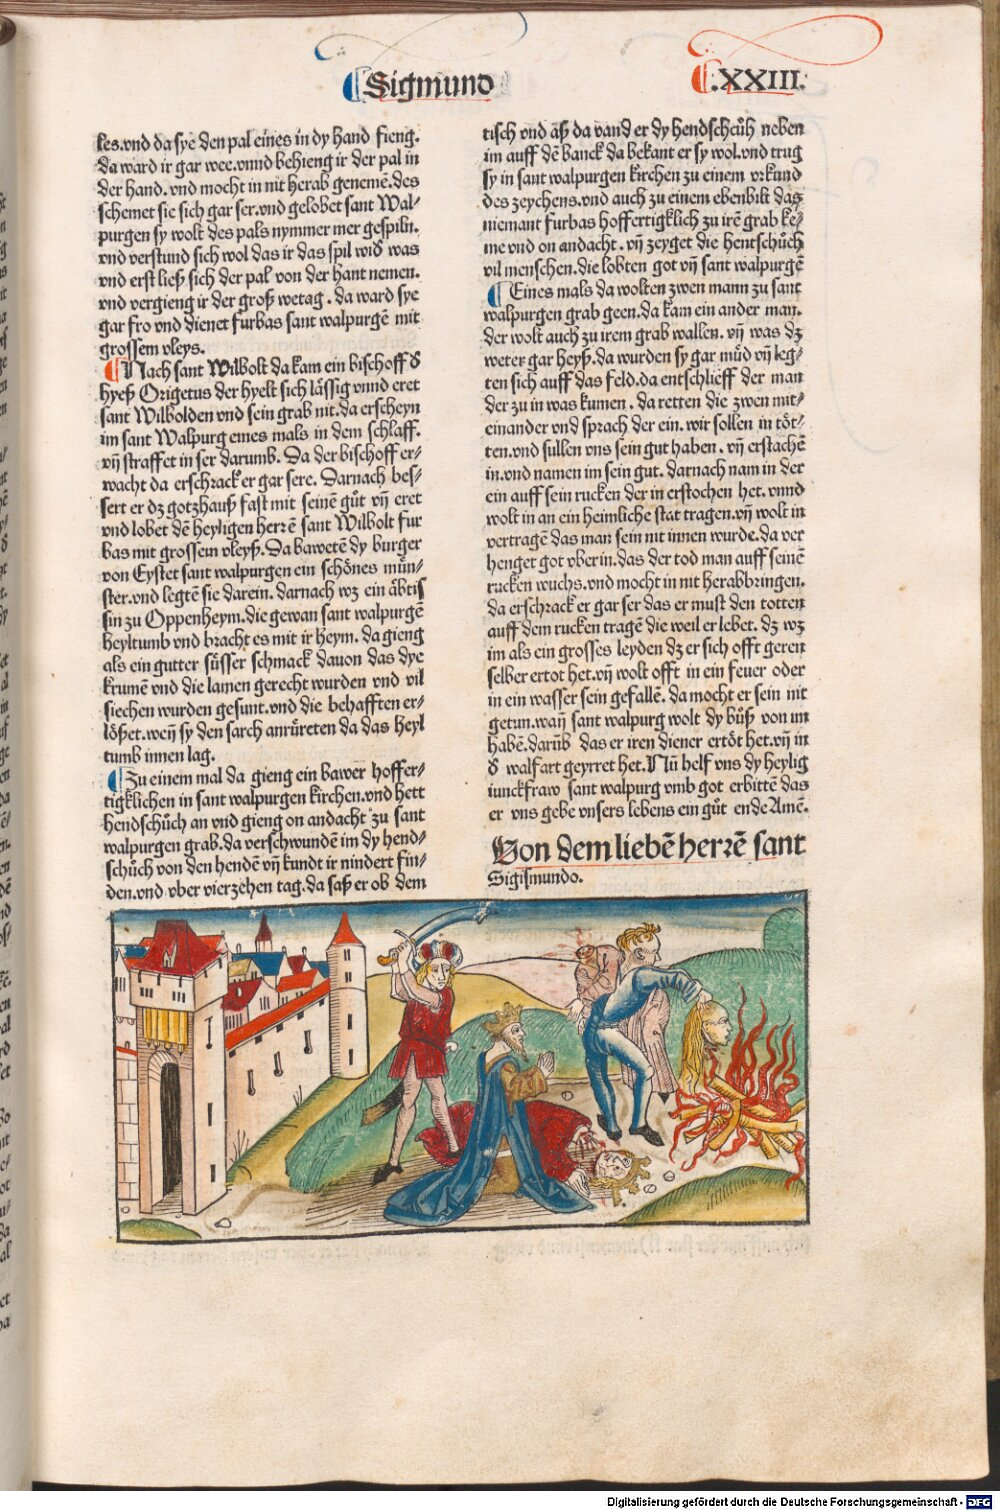 Sigmund
.XXIII.
kes.vnd da sye den pal eines in dy hand fieng.
da ward ir gar wee.vnnd behieng ir der pal in
der hand.vnd mocht in nit herab genemē.des
schemet sie sich gar ser.vnd gelobet sant Wal-
purgen sy wolt des pals nymmer mer gespiln.
vnd verstund sich wol das ir das spil wid was
vnd erst ließ sich der pal von der hant nemen.
vnd vergieng ir der groß wetag. da ward sye
gar fro vnd dienet furbas sant walpurgē mit
grossem vleys.
Nach sant Wilbolt da kam ein bischoff d
hyeß Origetus der hyelt sich lässig vnnd eret
sant Wilbolden vnd sein grab nit.da erscheyn
im sant Walpurg eines mals in dem schlaff.
vn̄ straffet in ser darumb. Da der bischoff er-
wacht da erschrack er gar sere. Darnach bes-
sert er dz gotzhauß fast mit seinē gůt vn̄ eret
vnd lobet dē heyligen herrē sant Wilbolt fur
bas mit grossem vleyß.Da bawetē dy burger
von Eystet sant walpurgen ein schönes mün-
ster.vnd legtē sie darein. darnach wz ein äbtis
sin zu Oppenheym.die gewan sant walpurgē
heyltumb vnd bracht es mit ir heym. da gieng
als ein gutter süsser schmack dauon das dye
krumē vnd die lamen gerecht wurden vnd vil
siechen wurden gesunt.vnd die behafften er-
lößet.wen̄ sy den sarch anrüreten da das heyl
tumb innen lag.
Zu einem mal da gieng ein bawer hoffer-
tigklichen in sant walpurgen kirchen.vnd hett
hendschůch an vnd gieng on andacht zu sant
walpurgen grab.da verschwundē im dy hend-
schůch von den hendē vn̄ kundt ir nindert fin-
den.vnd vber vierzehen tag.da saß er ob dem
tisch vnd aß da vand er dy hendschcůh neben
im auff dē banck da bekant er sy wol.vnd trug
sy in sant walpurgen kirchen zu einem vrkund
des zeychens.vnd auch zu einem ebenbilt das
niemant furbas hoffertigklich zu irē grab ke-
me vnd on andacht. vn̄ zeyget die hentschůch
vil menschen.die lobten got vn̄ sant walpurgē
Eines mals da wolten zwen mann zu sant
walpurgen grab geen.da kam ein ander man.
der wolt auch zu irem grab wallen. vn̄ was dz
weter gar heyß.da wurden sy gar můd vn̄ leg-
ten sich auff das feld.da entschlieff der man
der zu in was kumen. da retten die zwen mit-
einander vnd sprach der ein.wir sollen in töt-
ten.vnd sullen vns sein gut haben. vn̄ erstachē
in.vnd namen im sein gut. darnach nam in der
ein auff sein rucken der in erstochen het. vnnd
wolt in an ein heimliche stat tragen.vn̄ wolt in
vertragē das man sein nit innen wurde.da ver
henget got vber in.das der tod man auff seinē
rucken wuchs.vnd mocht in nit herabbringen.
da erschrack er gar ser das er must den totten
auff dem rucken tragē die weil er lebet. dz wz
im als ein grosses leyden dz er sich offt geren
selber ertot het.vn̄ wolt offt in ein feuer oder
in ein wasser sein gefallē. da mocht er sein nit
getun.wan̄ sant walpurg wolt dy bůß von im
habē.darūb das er iren diener ertöt het.vn̄ in
d walfart geyrret het.Nū helf vns dy heylig
iunckfraw sant walpurg vmb got erbittē das
er vns gebe vnsers lebens ein gůt ende Amē.
Von dem liebē herrē sant
Sigismundo.
Digitalisierung gefördert durch die Deutsche Forschungsgemeinschaft - DFG